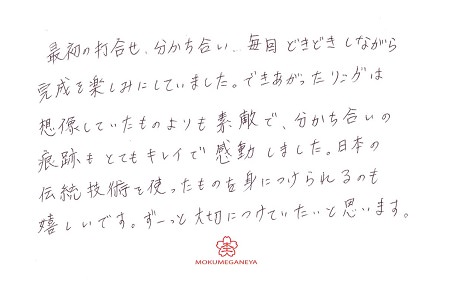 最初の打合せ、分かち合い、毎回どきどきしながら
完成を楽しみにしていました。できあがったリングは
想像していたものよりも素敵で、分かち合いの
痕跡もとてもキレイで感動しました。日本の
伝統技術を使ったものを身につけられるのも
嬉しいです。ずーっと大切につけていたいと思います。
MOKUMEGANEYA